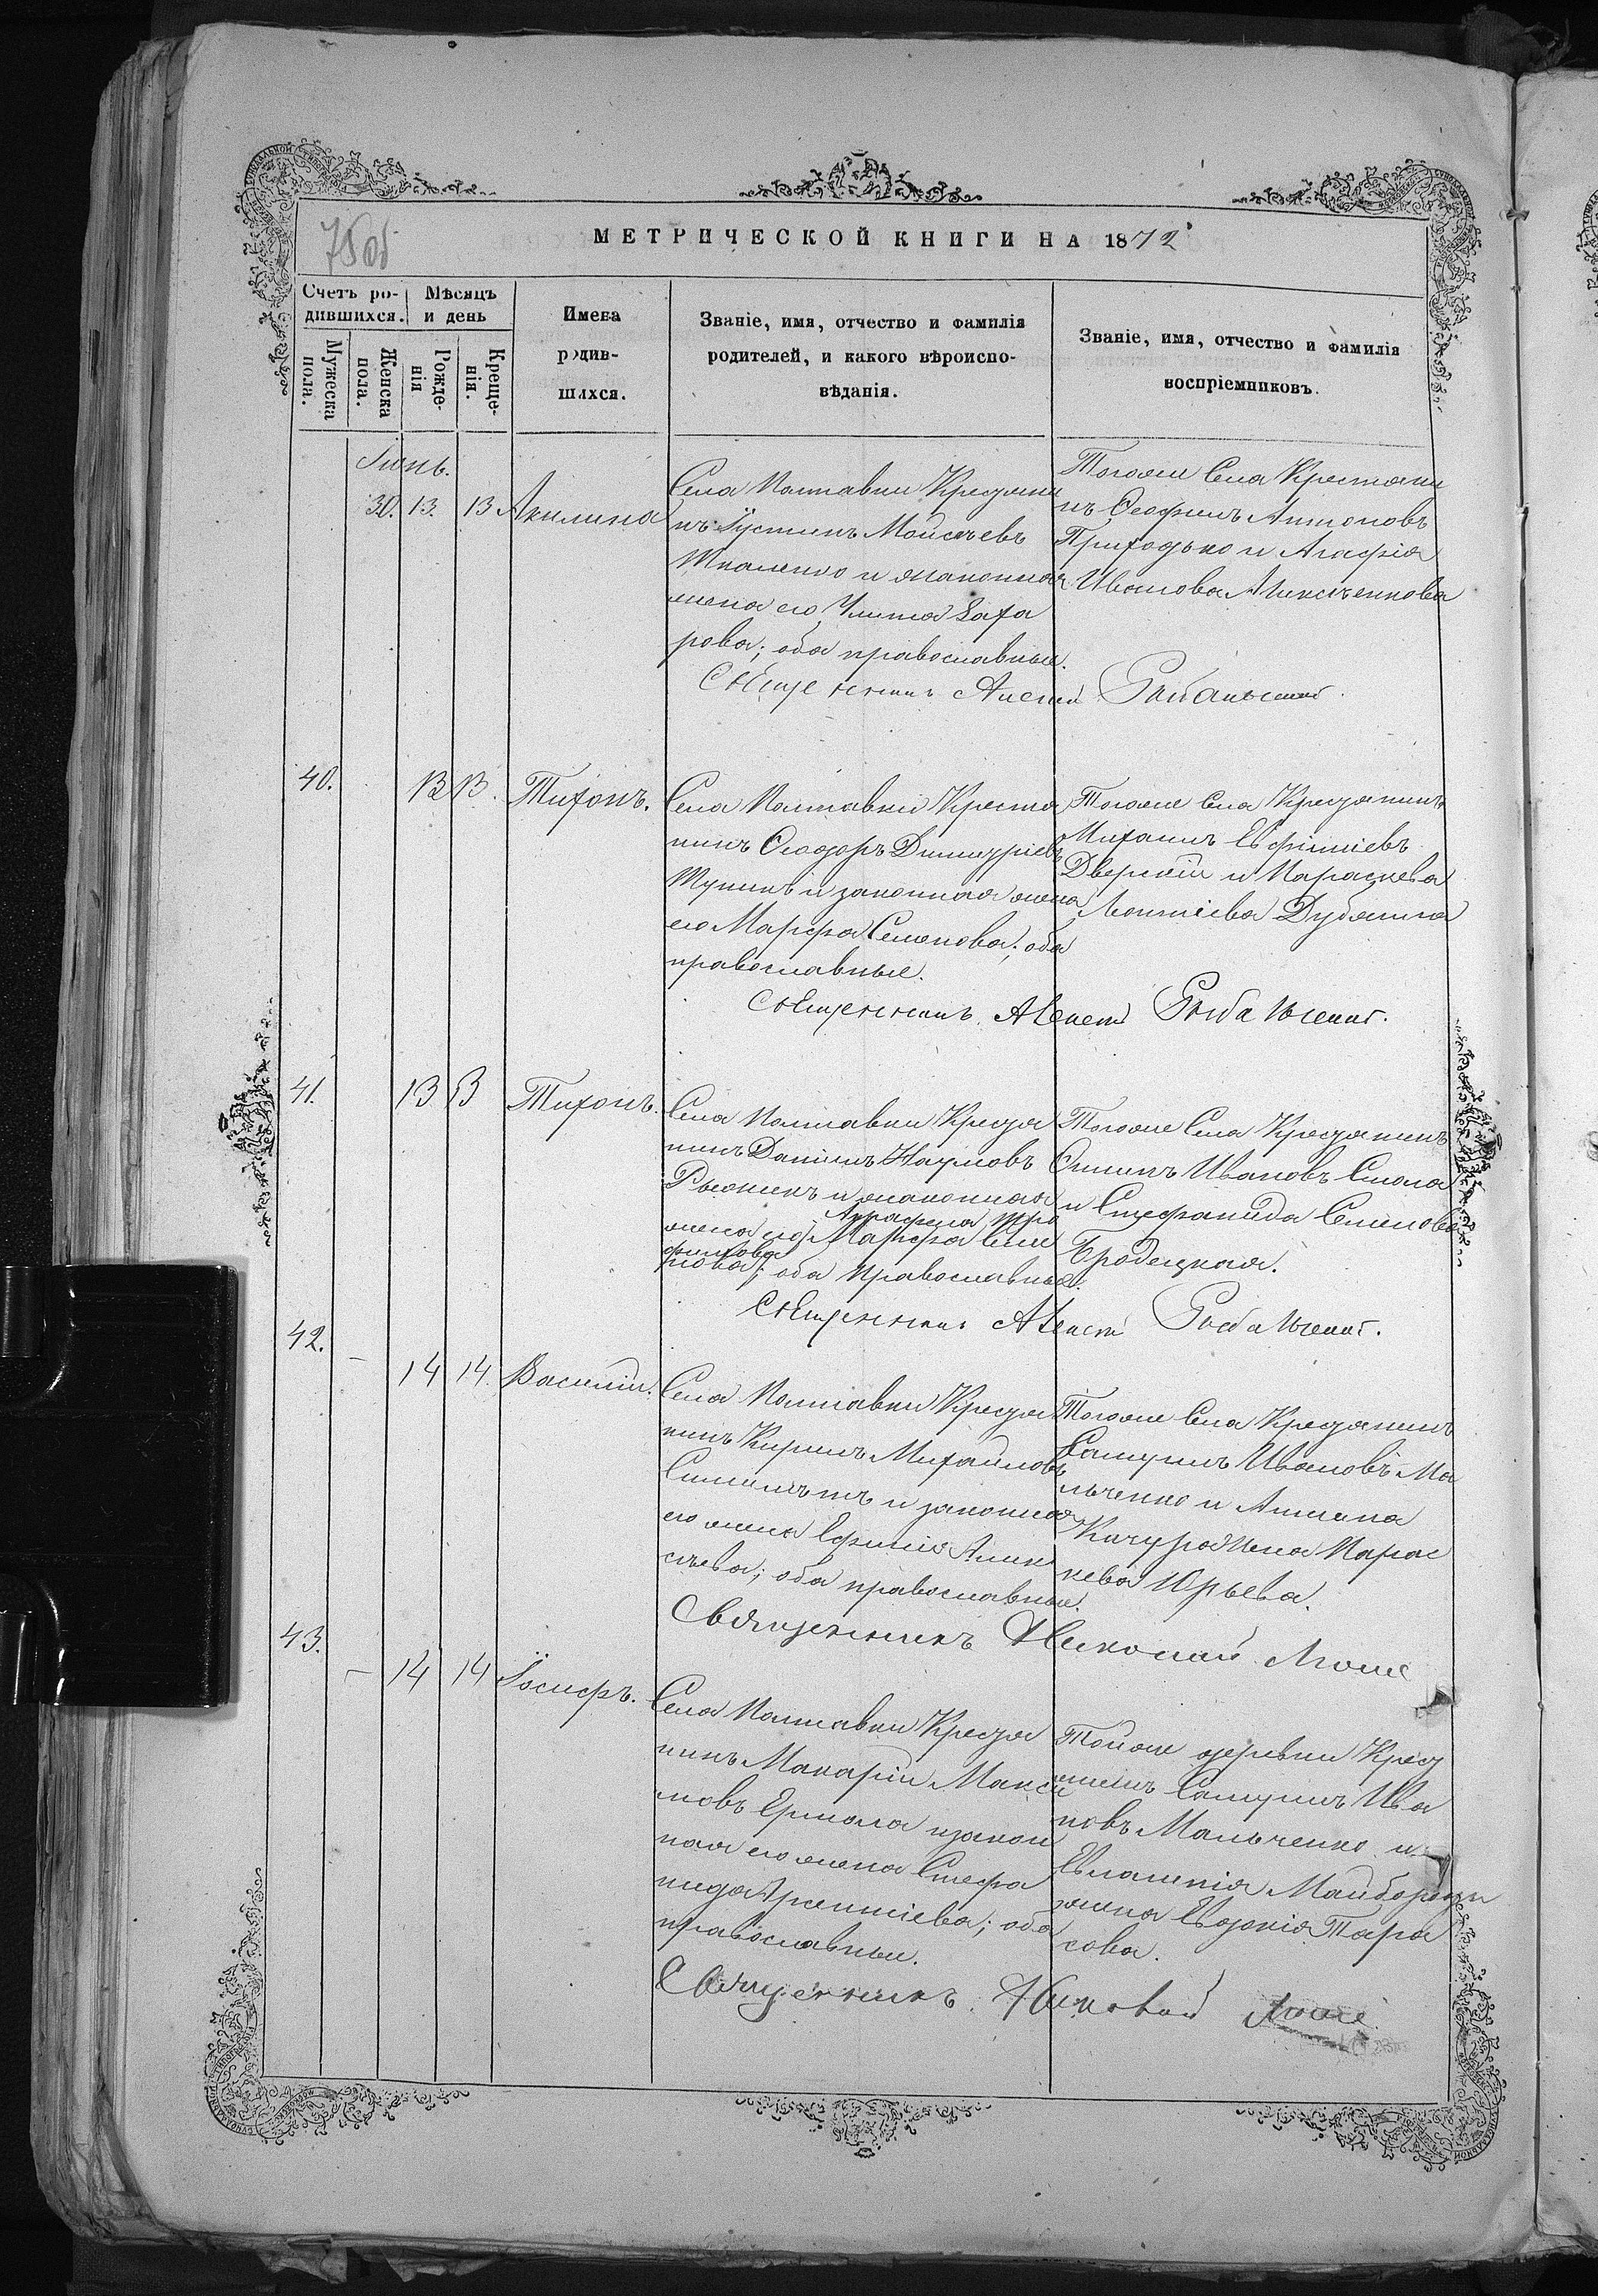 МЕТРИЧЕСКОЙ КНИГИ НА 1872
Счетъ ро-
дившихся.
Мѣсяцъ
и день
Мужеска
пола.
Женска
пола.
Рожде-
нія
Креще-
нія.
Имена
родив-
шихся.
Званіе, имя, отчество и фамилія
родителей, и какого вѣроиспо-
вѣданія.
Званіе, имя, отчество и фамилія
воспріемниковъ.
Іюнь.
30. 13. 13 Акилина
Села Полтавки Крестяни
нъ Іустинъ Моисѣевъ
и законная
жена его Улита Заха
рова; оба православные.
Тогоже Села Крестяни
нъ Ѳеофилъ Антоновъ
Приходько и Агафія
Иванова Алексѣенкова
Священникъ Алексѣй Рыбальский.
40. 13 13. Тихонъ.
Села Полтавки Крестя
нинъ Ѳеодоръ Димитріевъ
и законная жена
его Марфа Семенова; оба
православные.
Тогоже Села Крестянинъ
Михаилъ Евфиміевъ
Дверскій и Параскева
Леонтіева Дубянина
Священникъ Алексѣй Рыбальский.
41. 13 13 Тихонъ.
Села Полтавки Крестя
нинъ Даніилъ Наумовъ
Рыжикъ и законная
Аграфена Тро
жена его Марфа Семе
фимова
нова; оба православные.
Тогоже Села Крестянинъ
Ивановъ
и Стефанида Семенова
Бродецкая.
Священникъ Алексѣй Рыбальский.
42. – 14 14 Василій.
Села Полтавки Крестя
нинъ Кирилъ Михайловъ
и законная
его жена Ефимія Алек
сѣева; оба православные.
Тогоже Села Крестянинъ
Самуилъ Ивановъ Ма
льченко и
жена Парас
кева Юрьева.
Священникъ Николай
43. – 14 14 Іосифъ.
Села Полтавки Крестя
нинъ Макарій Макси
мовъ Ермола и закон
ная его жена Стефа
нида Арсентіева; оба
православные.
Тойже деревни Крест
янинъ Самуилъ Ива
новъ Мальченко и
жена Евдокія Тара
сова.
Священникъ Николай